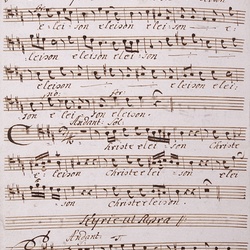 eleison eleison eleison e:
leison eleison eleison
eleison eleison elei:
son eleison eleison
Andant. Sol:
Christe eleison Christe
eleison eleison elei:
son Christe eleison.
Kyrie ut Supra
Andant.